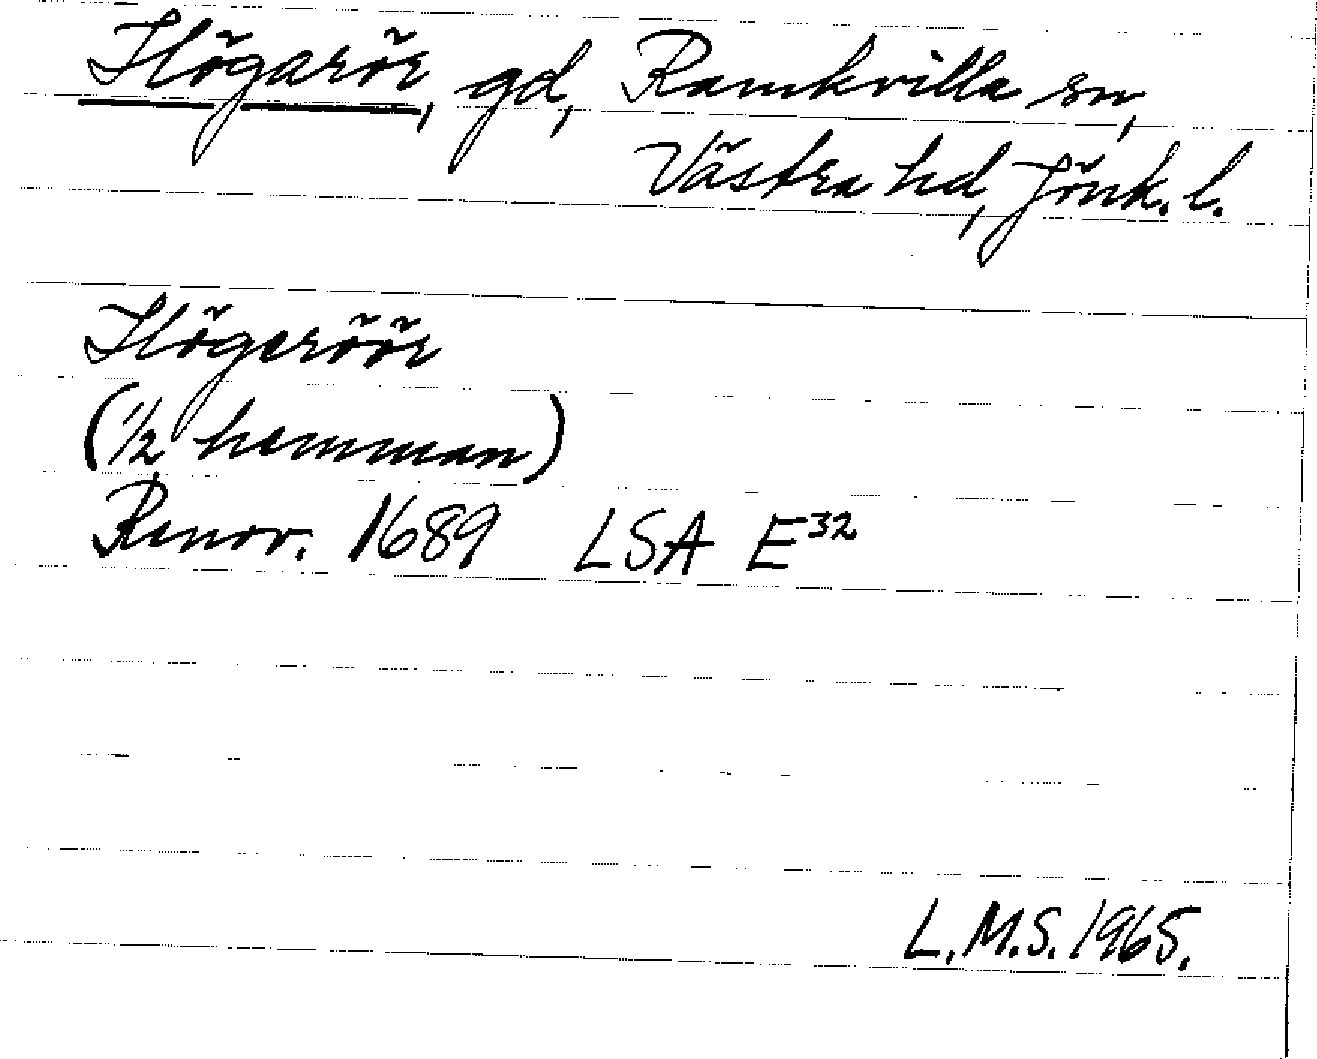 Högarör, gd, Ramkvilla sn,
Västra hd, Jönk. l.
Högeröör
(1/2 hemman)
Renov. 1689 LSA E³²
L.M.S. 1965.